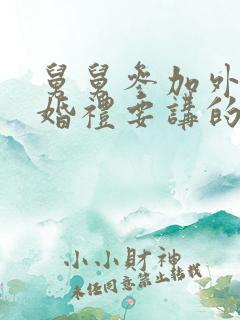 舅舅參加外
婚禮要講的
小小財神
未經同意禁止轉載